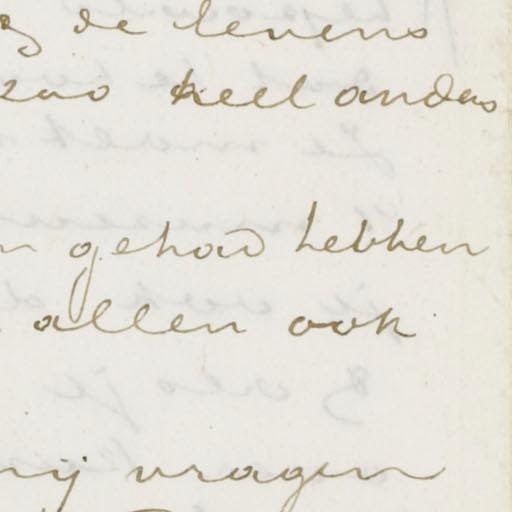 de levens
zoo heel anders
gehad hebben
allen ook
mij vragen